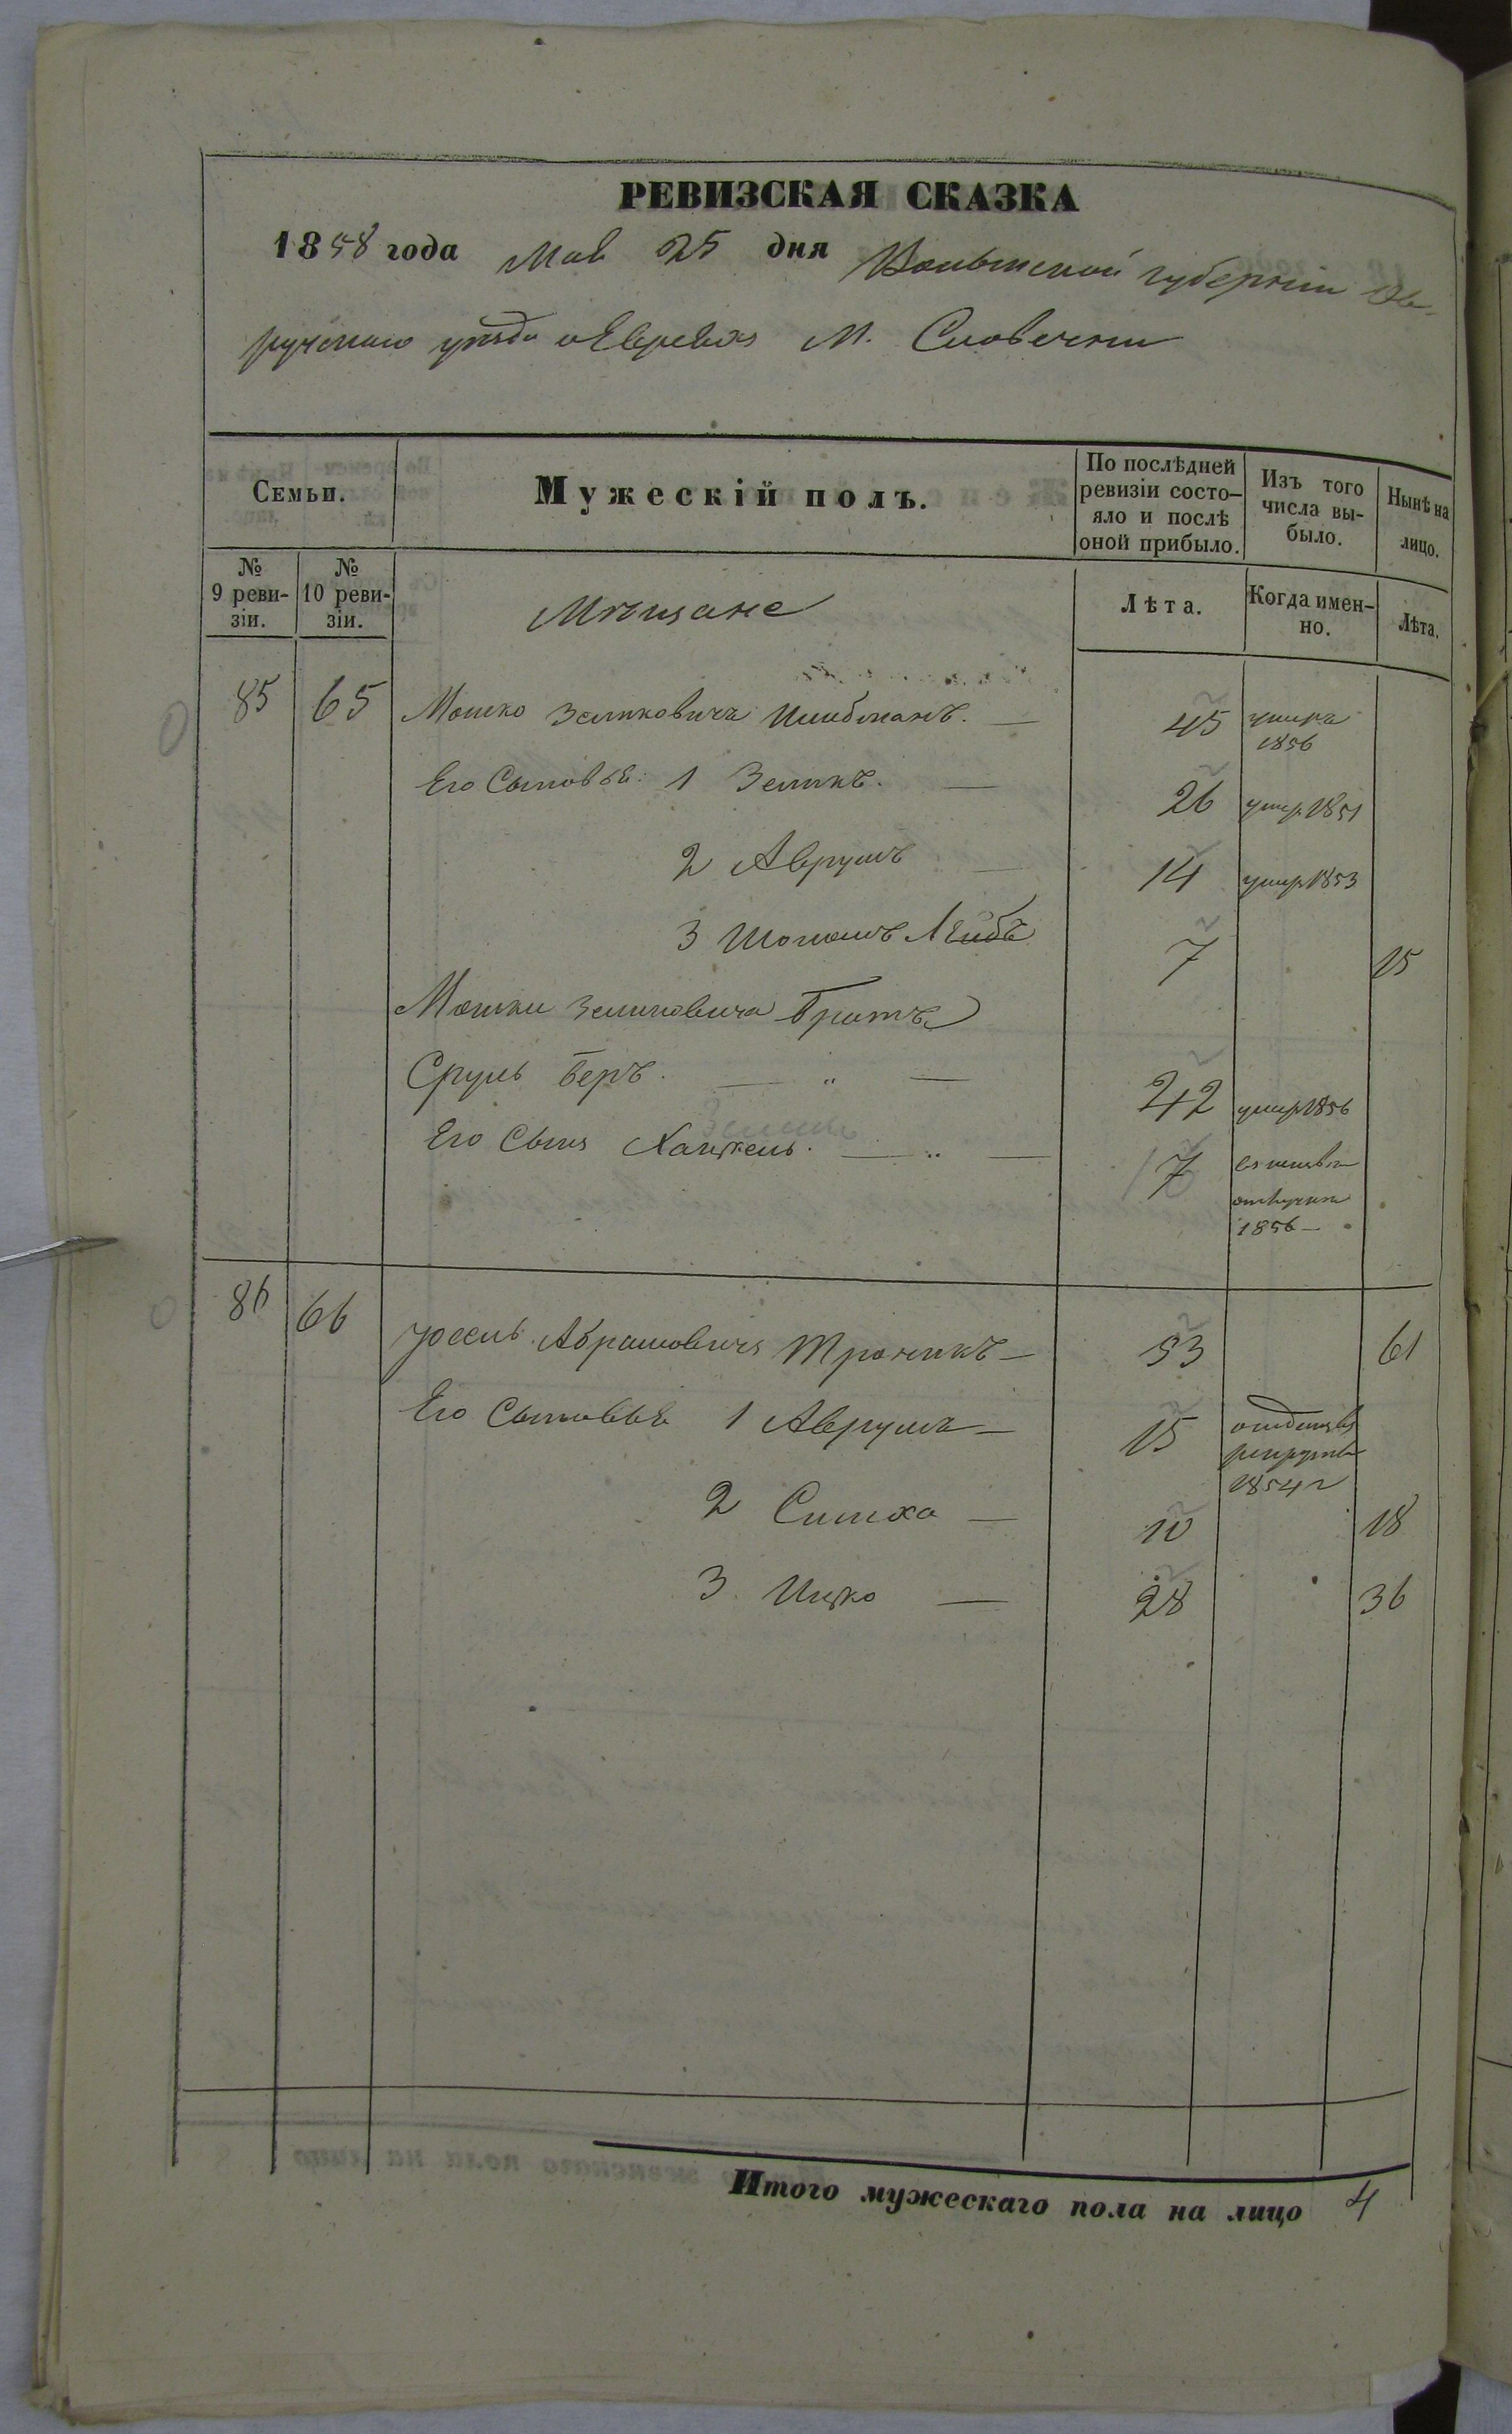 РЕВИЗСКАЯ СКАЗКА
1858 года Мая 25 дня Волынской губернiи Ов-
ручскаго уѣзда о Евреяхъ М. Словечни
Семьи. Мужескiй полъ. По послѣдней ревизiи состо-яло и послѣ оной прибыло. Изъ того числа вы-было. Нынѣ на лицо.
№ 9 реви-зiи. № 10 реви-зiи. Мѣщане Лѣта. Когда имен-но. Лѣта.
85 65 Мошко Зельковичъ 45 умеръ 1856
Его Сыновья: 1 Зеликъ. 26 умер. 1851
2 Аврумъ 14 умер 1853
3 Лейбъ 7 15
Мошки Зельковича Братъ
Сруль Беръ. " 42 умер 1856
Его Сынъ Хацкель. " 7 1856
86 66 Абрамовичъ 53 61
Его Сыновья 1 Аврумъ 15 отданъ въ рекруты 1854 г
2 Симха 10 18
3 Ицко 28 36
Итого мужескаго пола на лицо 4